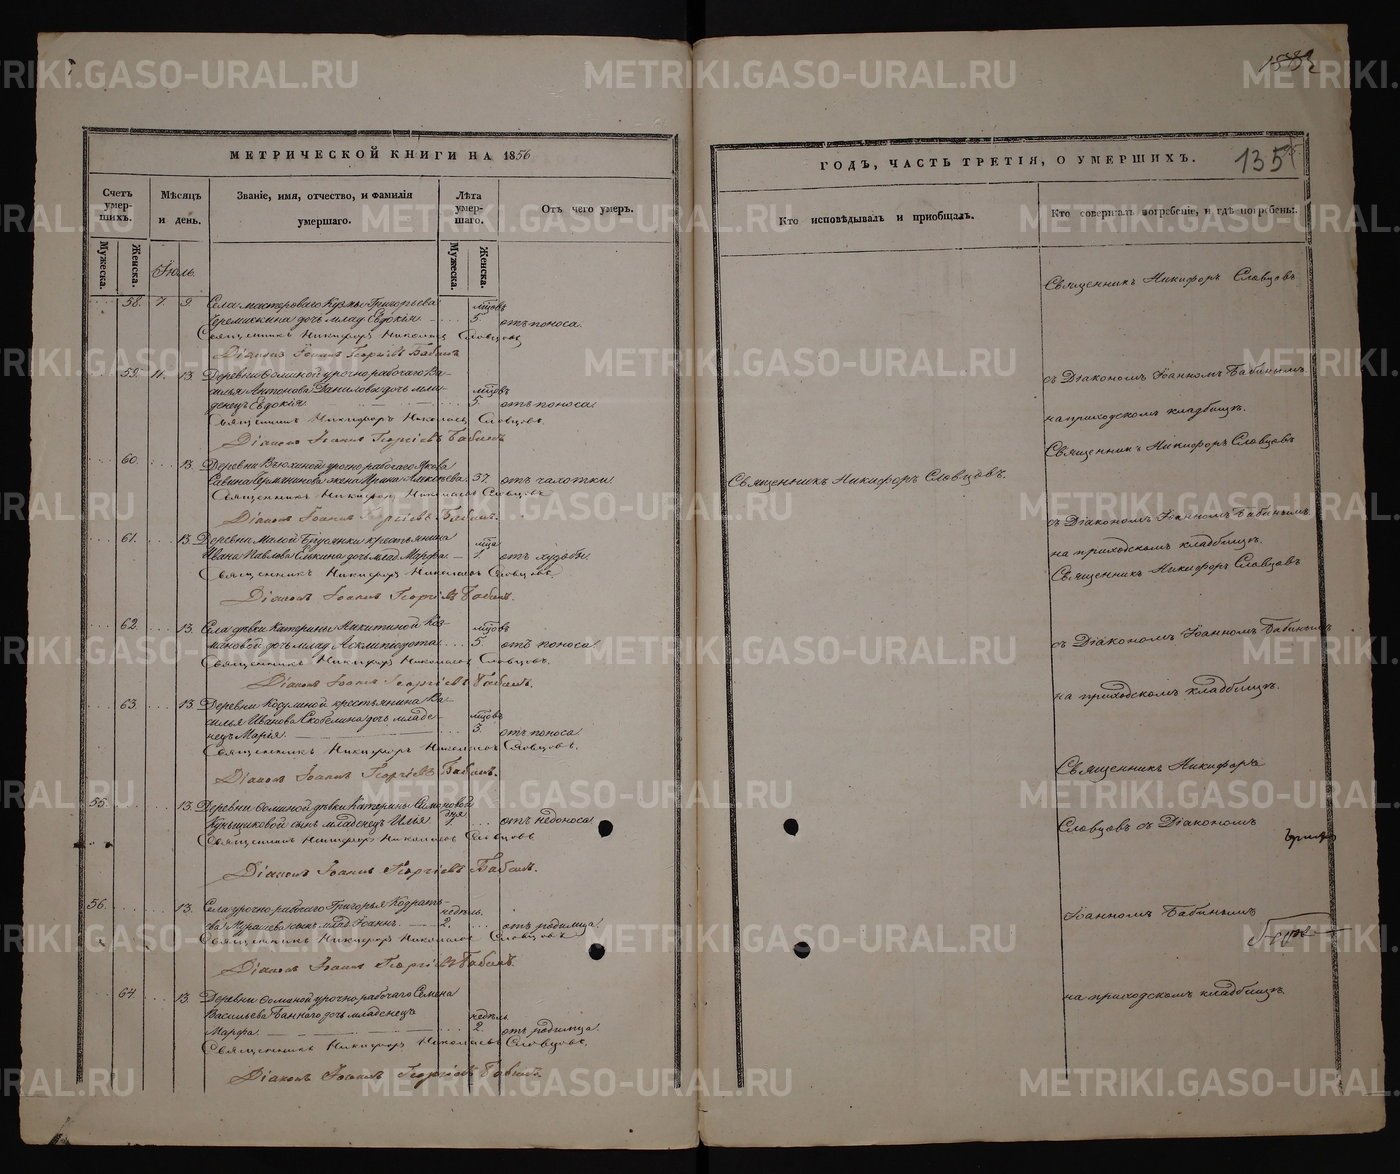 МЕТРИЧЕСКОЙ КНИГИ НА 1856
Счетъ умер-шихъ.
Мѣсяцъ и день.
Званіе, имя, отчество, и фамилія умершаго.
Лѣта умер-шаго.
Отъ чего умеръ.
Мужеска. Женска.
Мужеска. Женска.
Іюль.
58. 7. 9. Села мастероваго Кузмы Григорьева мцовъ
дочь млад Евдокія 5. отъ поноса.
Священникъ Никифоръ Николаевъ Словцовъ
Діаконъ Іоаннъ Георгіевъ Бабинъ
59. 11. 13. Деревни Боминой урочно рабочаго Ва-
силья Антонова Данилова дочь мла- мцовъ
денецъ Евдокія. 5. отъ поноса.
Священникъ Никифоръ Николаевъ Словцовъ.
Діаконъ Іоаннъ Георгіевъ Бабинъ
60. 13. Деревни урочно рабочаго Якова
Савина жена Ирина Алексѣева. 37. отъ чахотки.
Священникъ Никифоръ Николаевъ Словцовъ
Діаконъ Іоаннъ Георгіевъ Бабинъ.
61. 13. Деревни Малой Брусянки крестьянина мцъ
Ивана Павлова Елькина дочь млад Марфа 1. отъ худобы
Священникъ Никифоръ Николаевъ Словцовъ.
Діаконъ Іоаннъ Георгіевъ Бабинъ.
62. 13. Села дѣвки Катерины Никитиной Каз- мцовъ
мановой дочь млад Асклипіодота 5. отъ поноса.
Священникъ Никифоръ Николаевъ Словцовъ.
Діаконъ Іоаннъ Георгіевъ Бабинъ.
63. 13. Деревни Косулиной крестьянина Ва-
силья Иванова Скобелина дочь младе- мцовъ
нецъ Марія. 3. отъ поноса.
Священникъ Никифоръ Николаевъ Словцовъ.
Діаконъ Іоаннъ Георгіевъ Бабинъ.
55. 13. Деревни Боминой дѣвки Катерины Симоновой
сынъ младенецъ Илья отъ недоноса
Священникъ Никифоръ Николаевъ Словцовъ
Діаконъ Іоаннъ Георгіевъ Бабинъ.
56. 13. Села урочно рабочаго Григорья Кодрать- недѣль.
ева Мурашева сынъ млад Іоаннъ. 2. отъ родимца.
Священникъ Никифоръ Николаевъ Словцовъ
Діаконъ Іоаннъ Георгіевъ Бабинъ.
64. 13. Деревни Боминой урочно рабочаго Семена
Васильева дочь младенецъ недѣль
Марфа. 2. отъ родимца.
Священникъ Никифоръ Николаевъ Словцовъ.
Діаконъ Іоаннъ Георгіевъ Бабинъ.
135
ГОДЪ, ЧАСТЬ ТРЕТІЯ, О УМЕРШИХЪ.
Кто исповѣдывалъ и пріобщалъ.
Кто совершалъ погребеніе, и гдѣ погребены.
Священникъ Никифоръ Словцовъ
съ Діакономъ Іоанномъ Бабинымъ
на приходскомъ кладбищѣ.
Священникъ Никифоръ Словцовъ
Священникъ Никифоръ Словцовъ.
съ Діакономъ Іоанномъ Бабинымъ
на приходскомъ кладбищѣ.
Священникъ Никифоръ Словцовъ
съ Діакономъ Іоанномъ Бабинымъ
на приходскомъ кладбищѣ.
Священникъ Никифоръ
Словцовъ съ Діакономъ
Іоанномъ Бабинымъ
на приходскомъ кладбищѣ.
METRIKI.GASO-URAL.RU